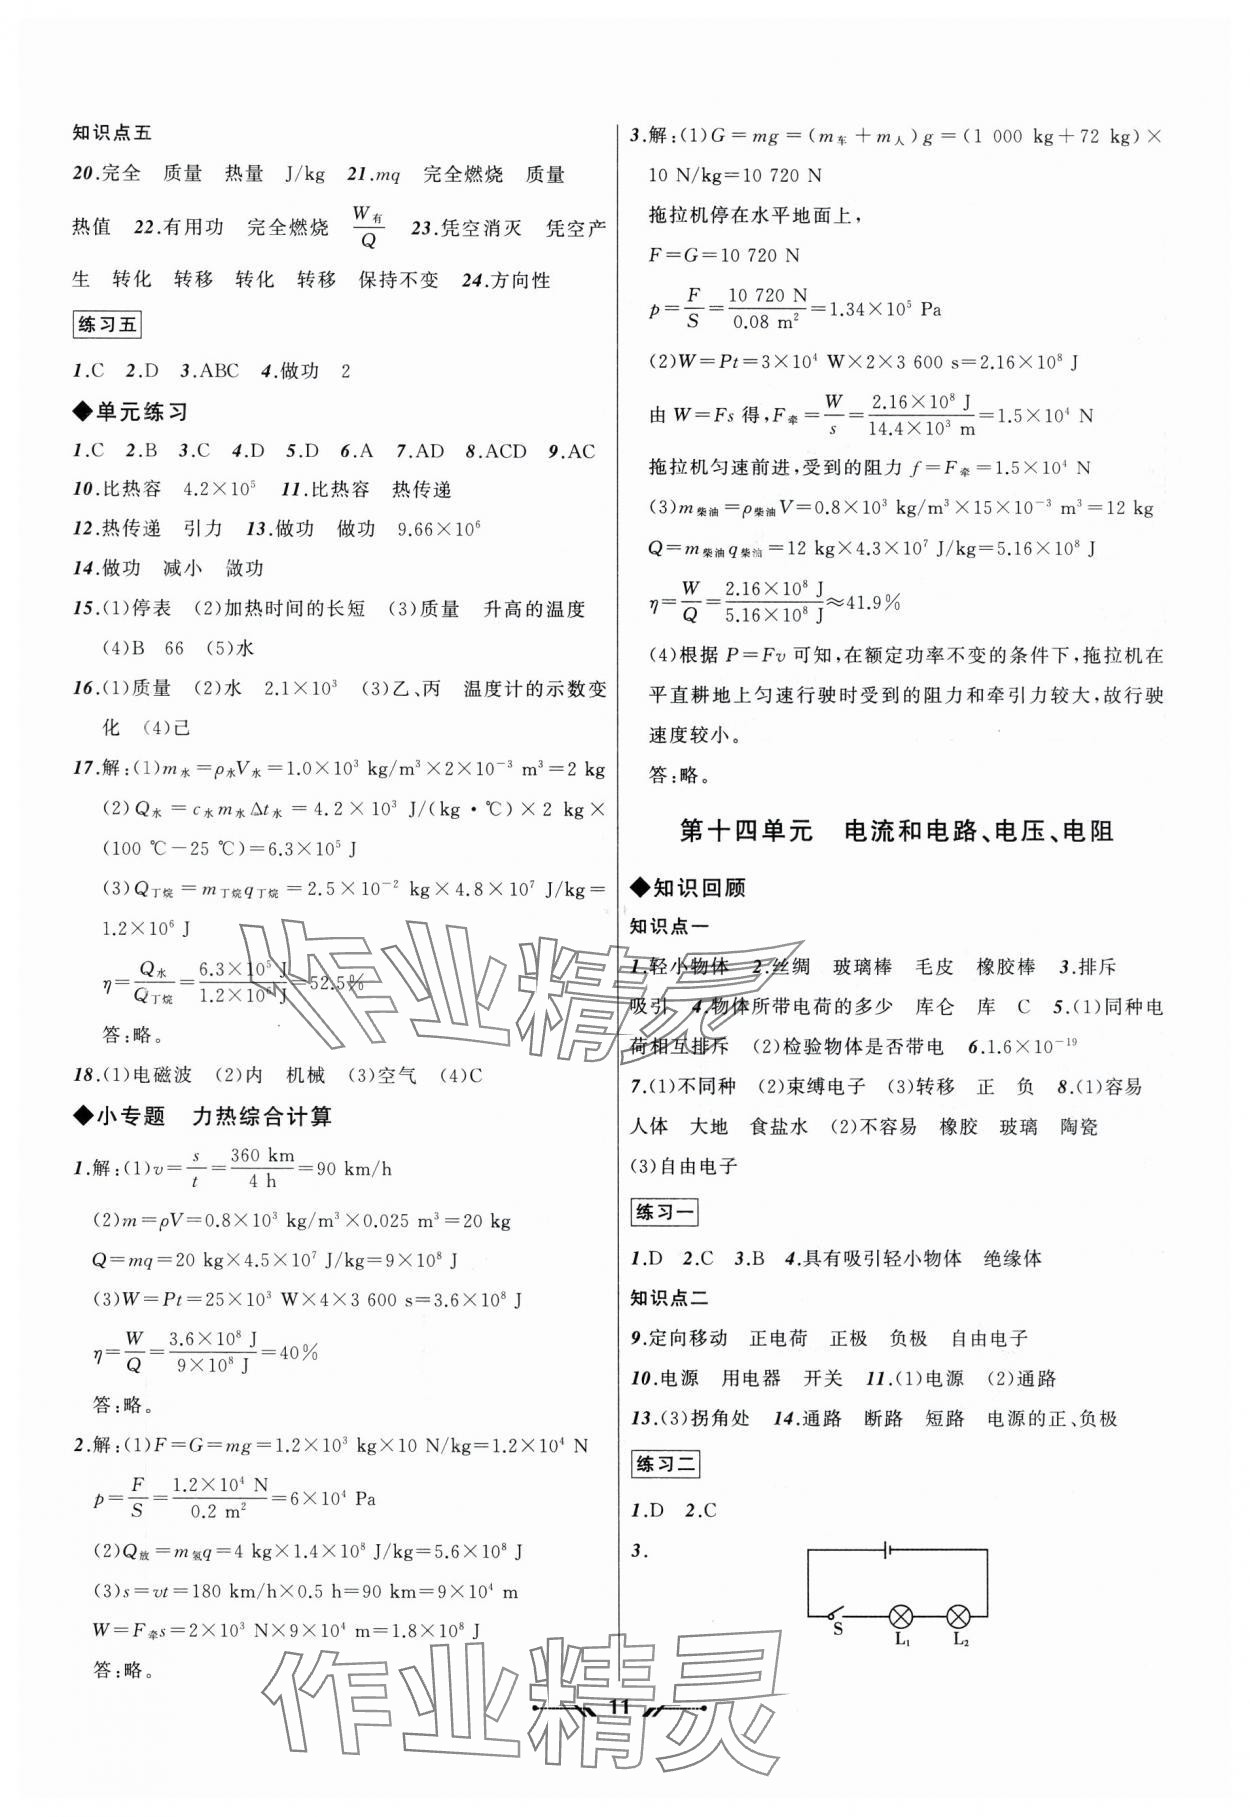 知识点五
20.完全 质量 热量 J/kg 21.mq 完全燃烧 质量
热值 22.有用功 完全燃烧 W有/Q 23.凭空消灭 凭空产
生 转化 转移 转化 转移 保持不变 24.方向性
练习五
1.C 2.D 3.ABC 4.做功 2
◆单元练习
1.C 2.B 3.C 4.D 5.D 6.A 7.AD 8.ACD 9.AC
10.比热容 4.2×10⁵ 11.比热容 热传递
12.热传递 引力 13.做功 做功 9.66×10⁶
14.做功 减小 做功
15.(1)停表 (2)加热时间的长短 (3)质量 升高的温度
(4)B 66 (5)水
16.(1)质量 (2)水 2.1×10³ (3)乙、丙 温度计的示数变
化 (4)己
17.解:(1)m水=ρ水V水=1.0×10³ kg/m³×2×10⁻³ m³=2 kg
(2)Q水=c水m水Δt水=4.2×10³ J/(kg·℃)×2 kg×
(100 ℃-25 ℃)=6.3×10⁵ J
(3)Q丁烷=m丁烷q丁烷=2.5×10⁻² kg×4.8×10⁷ J/kg=
1.2×10⁶ J
η=Q水/Q丁烷=6.3×10⁵ J/1.2×10⁶ J=52.5%
答:略。
18.(1)电磁波 (2)内 机械 (3)空气 (4)C
◆小专题 力热综合计算
1.解:(1)v=s/t=360 km/4 h=90 km/h
(2)m=ρV=0.8×10³ kg/m³×0.025 m³=20 kg
Q=mq=20 kg×4.5×10⁷ J/kg=9×10⁸ J
(3)W=Pt=25×10³ W×4×3 600 s=3.6×10⁸ J
η=W/Q=3.6×10⁸ J/9×10⁸ J=40%
答:略。
2.解:(1)F=G=mg=1.2×10³ kg×10 N/kg=1.2×10⁴ N
p=F/S=1.2×10⁴ N/0.2 m²=6×10⁴ Pa
(2)Q放=m氢q=4 kg×1.4×10⁸ J/kg=5.6×10⁸ J
(3)s=vt=180 km/h×0.5 h=90 km=9×10⁴ m
W=F牵s=2×10³ N×9×10⁴ m=1.8×10⁸ J
答:略。
3.解:(1)G=mg=(m车+m人)g=(1 000 kg+72 kg)×
10 N/kg=10 720 N
拖拉机停在水平地面上,
F=G=10 720 N
p=F/S=10 720 N/0.08 m²=1.34×10⁵ Pa
(2)W=Pt=3×10⁴ W×2×3 600 s=2.16×10⁸ J
由W=Fs得,F牵=W/s=2.16×10⁸ J/14.4×10³ m=1.5×10⁴ N
拖拉机匀速前进,受到的阻力f=F牵=1.5×10⁴ N
(3)m柴油=ρ柴油V=0.8×10³ kg/m³×15×10⁻³ m³=12 kg
Q=m柴油q柴油=12 kg×4.3×10⁷ J/kg=5.16×10⁸ J
η=W/Q=2.16×10⁸ J/5.16×10⁸ J≈41.9%
(4)根据P=Fv可知,在额定功率不变的条件下,拖拉机在
平直耕地上匀速行驶时受到的阻力和牵引力较大,故行驶
速度较小。
答:略。
第十四单元 电流和电路、电压、电阻
◆知识回顾
知识点一
1.轻小物体 2.丝绸 玻璃棒 毛皮 橡胶棒 3.排斥
吸引 4.物体所带电荷的多少 库仑 库 C 5.(1)同种电
荷相互排斥 (2)检验物体是否带电 6.1.6×10⁻¹⁹
7.(1)不同种 (2)束缚电子 (3)转移 正 负 8.(1)容易
人体 大地 食盐水 (2)不容易 橡胶 玻璃 陶瓷
(3)自由电子
练习一
1.D 2.C 3.B 4.具有吸引轻小物体 绝缘体
知识点二
9.定向移动 正电荷 正极 负极 自由电子
10.电源 用电器 开关 11.(1)电源 (2)通路
13.(3)拐角处 14.通路 断路 短路 电源的正、负极
练习二
1.D 2.C
3.
S L₁ L₂
11
作业精灵
作业精灵